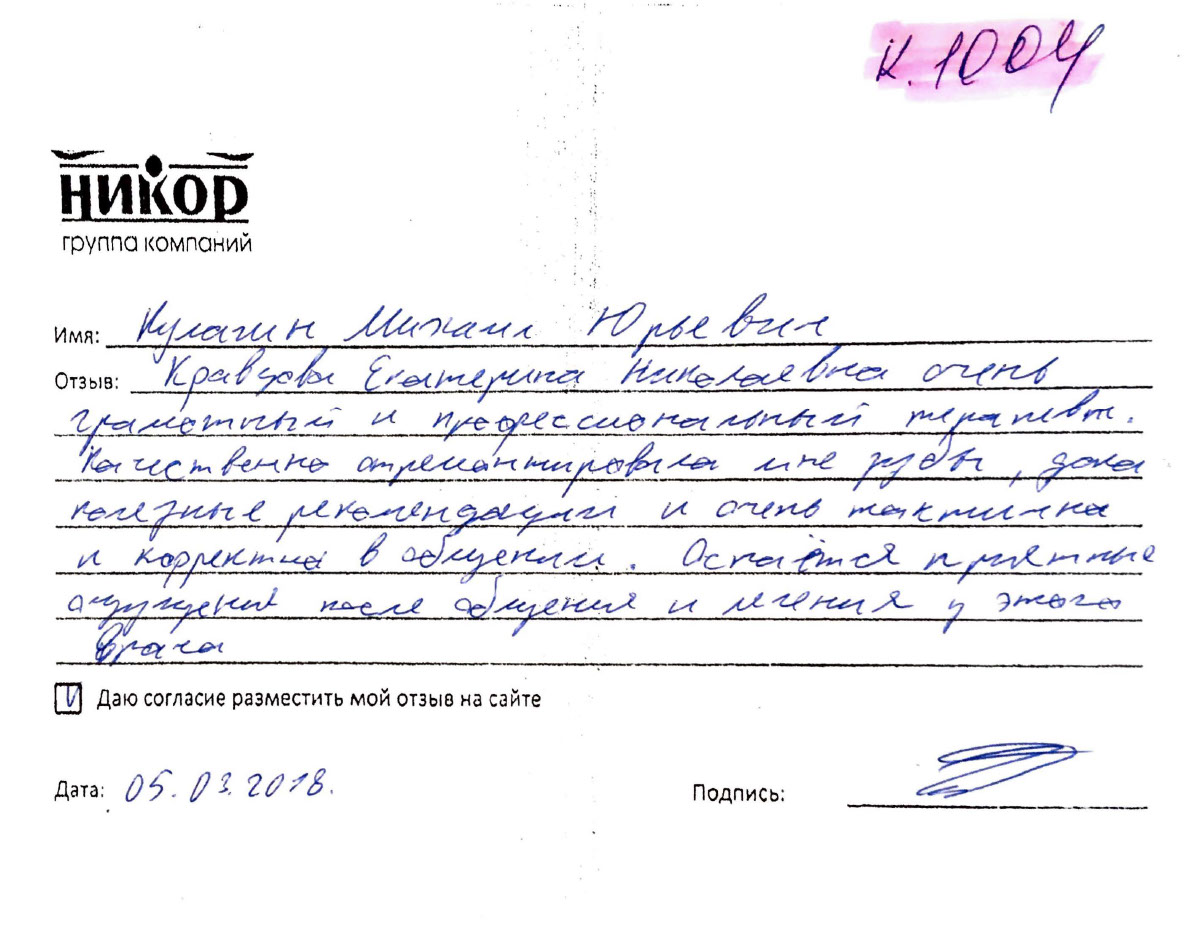 К. 1004
НИКОР
группа компаний
Имя: Кулагин Михаил Юрьевич
Отзыв: Кравцова Екатерина Николаевна очень
грамотный и профессиональный терапевт.
Качественно отремонтировала мне зубы, дала
полезные рекомендации и очень тактична
и корректна в общении. Остаётся приятные
ощущения после общения и лечения у этого
врача
Даю согласие разместить мой отзыв на сайте
Дата: 05.03.2018.
Подпись: